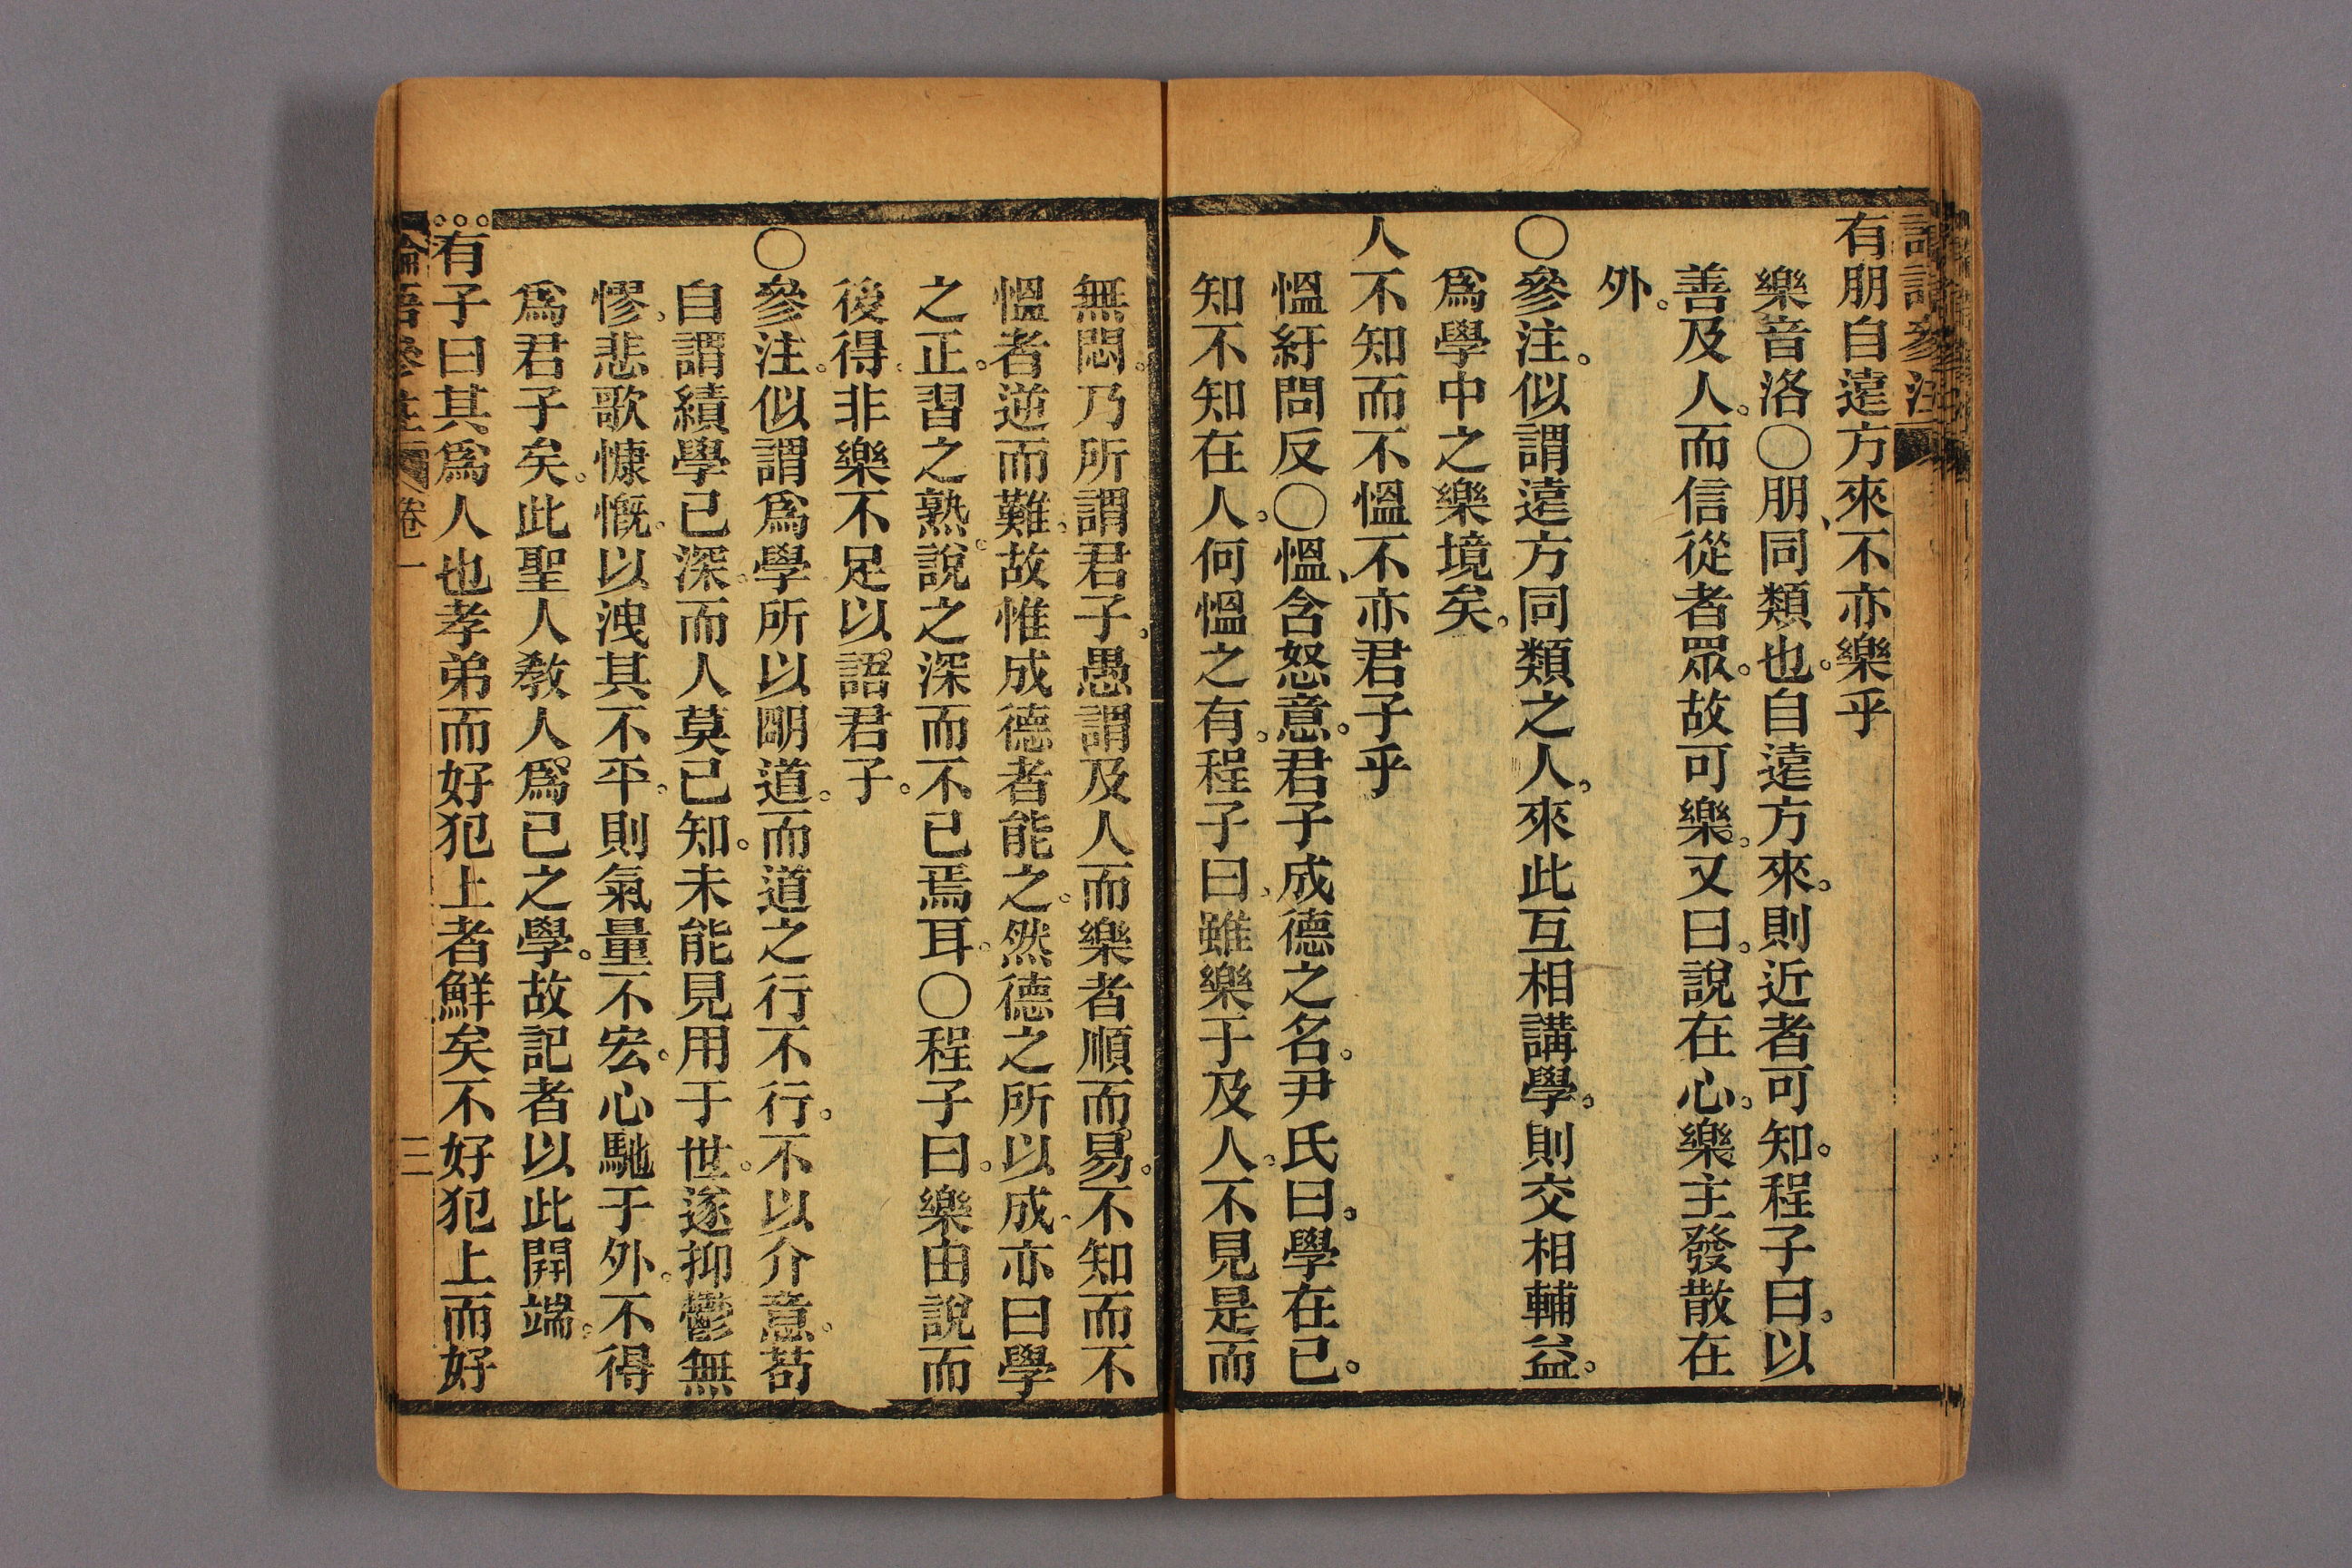 有朋自遠方來不亦樂乎
樂音洛○朋同類也。自遠方來。則近者可知。程子曰。以
善及人。而信從者眾。故可樂。又曰。說在心。樂主發散在
外。
○參注。似謂遠方同類之人。來此互相講學。則交相輔益。
爲學中之樂境矣。
人不知而不慍不亦君子乎
慍紆問反○慍、含怒意。君子成德之名。尹氏曰。學在己。
知不知在人。何慍之有。程子曰、雖樂于及人、不見是而
無悶。乃所謂君子。愚謂及人而樂者順而易。不知而不
慍者逆而難。故惟成德者能之。然德之所以成、亦曰學
之正。習之熟。說之深而不已焉耳。○程子曰。樂由說而
後得、非樂不足以語君子。
○參注。似謂爲學所以明道。而道之行不行。不以介意。苟
自謂績學已深。而人莫己知。未能見用于世。遂抑鬱無
憀。悲歌慷慨。以洩其不平。則氣量不宏。心馳于外。不得
爲君子矣。此聖人教人爲己之學。故記者以此開端。
有子曰其爲人也孝弟而好犯上者鮮矣不好犯上而好
論語參注 卷一 三